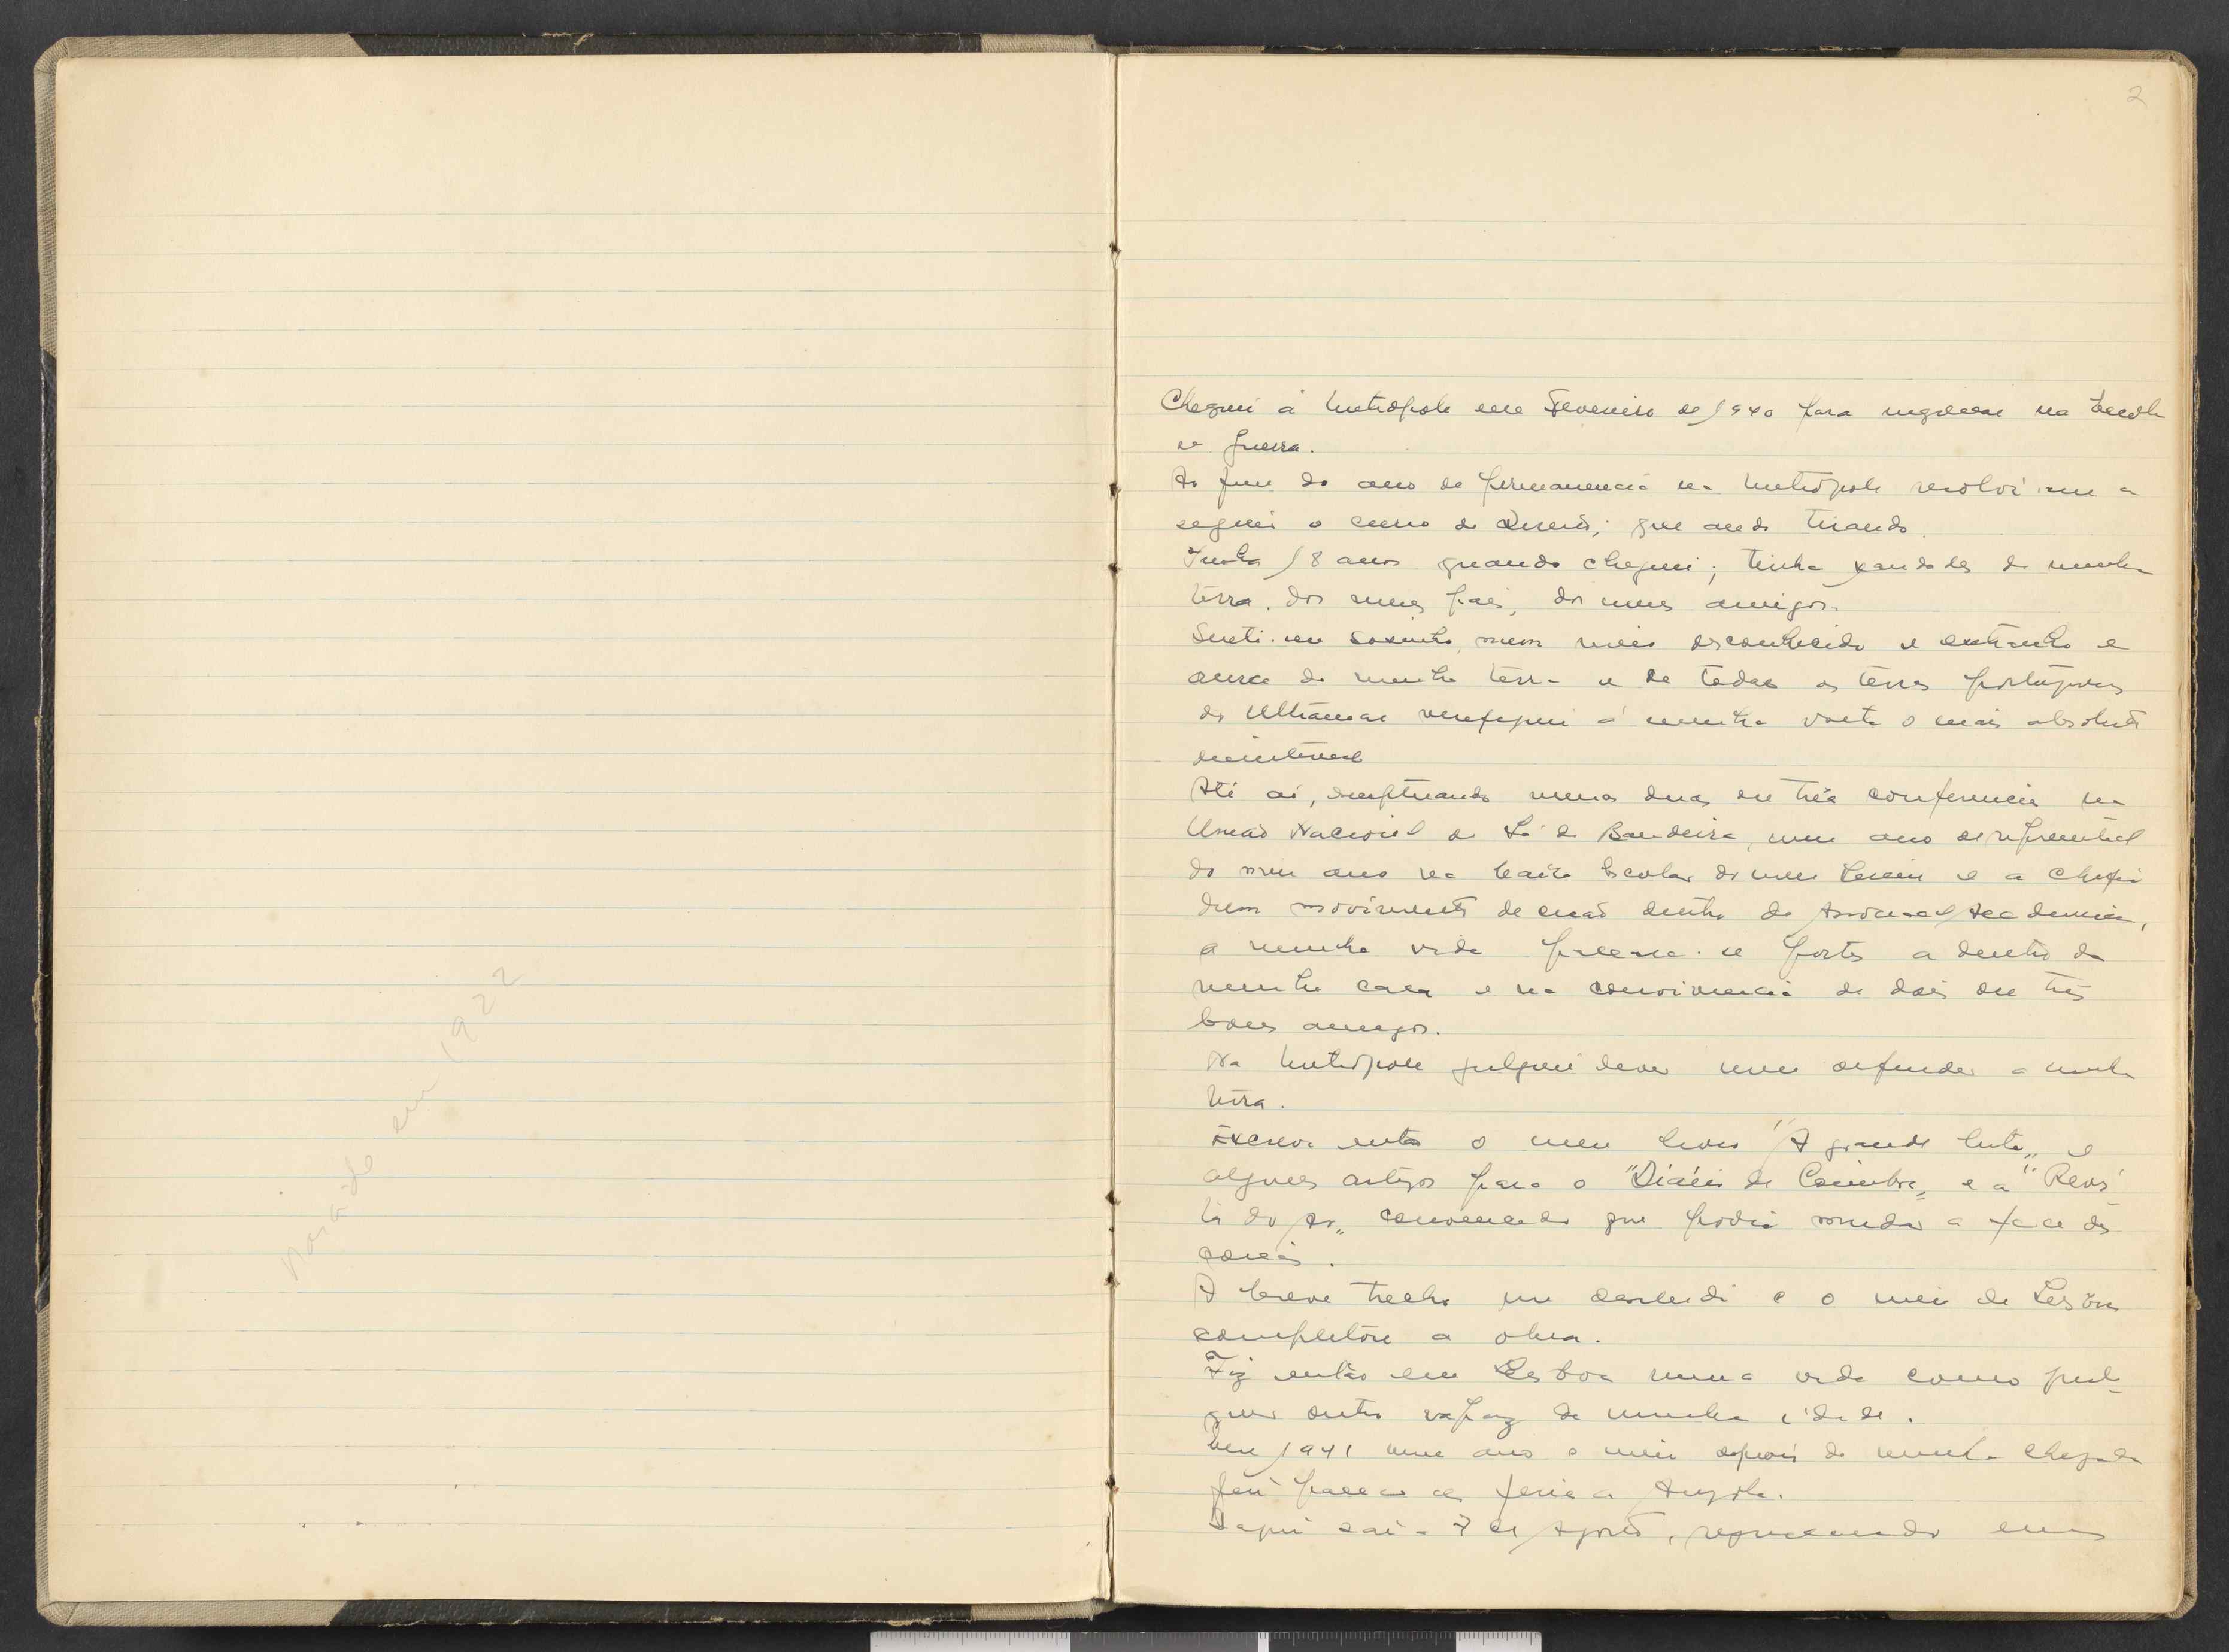 nascido em 1922
2
Cheguei á Metropole em Fevereiro de 1940 para ingressar na Escola
de Guerra.
Ao fim do ano de permanencia na Metropole resolvi-me a
seguir o curso de Direito, que ando tirando.
Tinha 18 anos quando cheguei; tinha saudades da minha
terra, dos meus pais, dos meus amigos.
Senti-me sosinho, num meio desconhecido e extranho e
acerca da minha terra e de todas as terras portuguesas
do Ultramar verifiquei á minha volta o mais absoluto
desinteresse
Até aí, exceptuando umas duas ou três conferencias na
União Nacional de Sá da Bandeira, um ano de representante
do meu ano na Caixa Escolar do meu Liceu e a chefia
dum movimento de dentro da Associação Academica,
a minha vida passara-se portas a dentro da
minha casa e na convivencia de dois ou três
bons amigos.
Na Metropole julguei dever meu defender a minha
terra.
Escrevi então o meu livro "A grande luta" e
alguns artigos para o "Diário de Coimbra" e a "Revis
ta do Ar" convencido que podia mudar a face das
coisas.
A breve trecho me desiludi e o meio de Lisboa
completou a obra.
Fiz então em Lisboa uma vida como qual-
quer outro rapaz da minha idade.
Em 1941 um ano e meio depois da minha chegada
fui passar as ferias a Angola.
Daqui saí a 7 de Agosto, regressando em